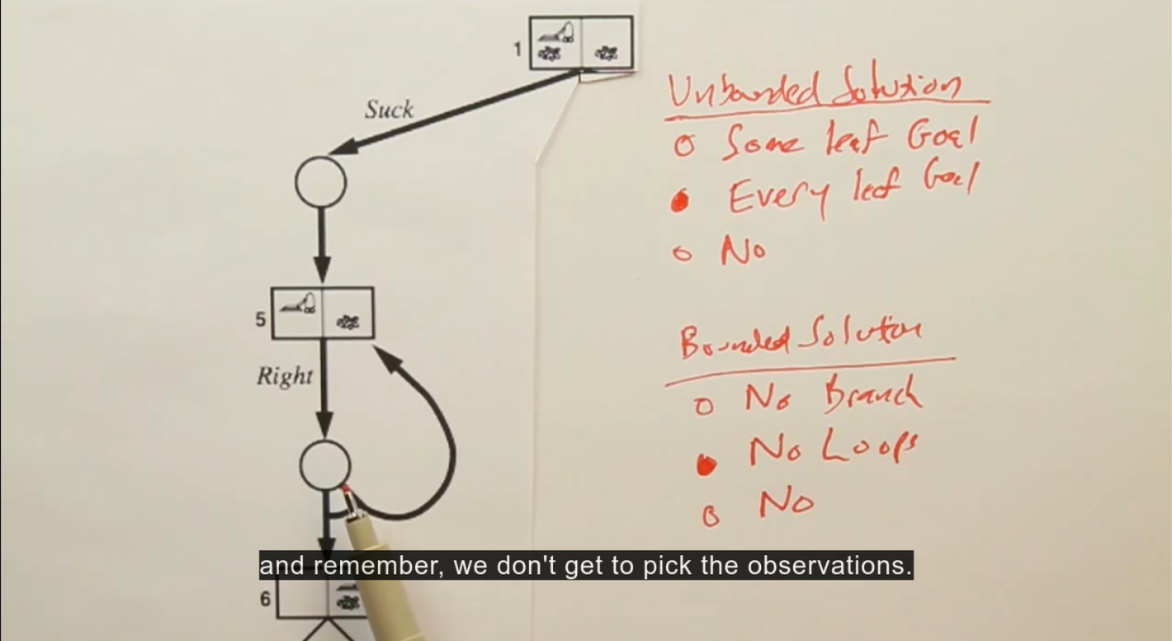 1
Suck
5
Right
6
Unbounded Solution
Some leaf Goal
Every leaf Goal
No
Bounded Solution
No Branch
No Loops
No
and remember, we don't get to pick the observations.